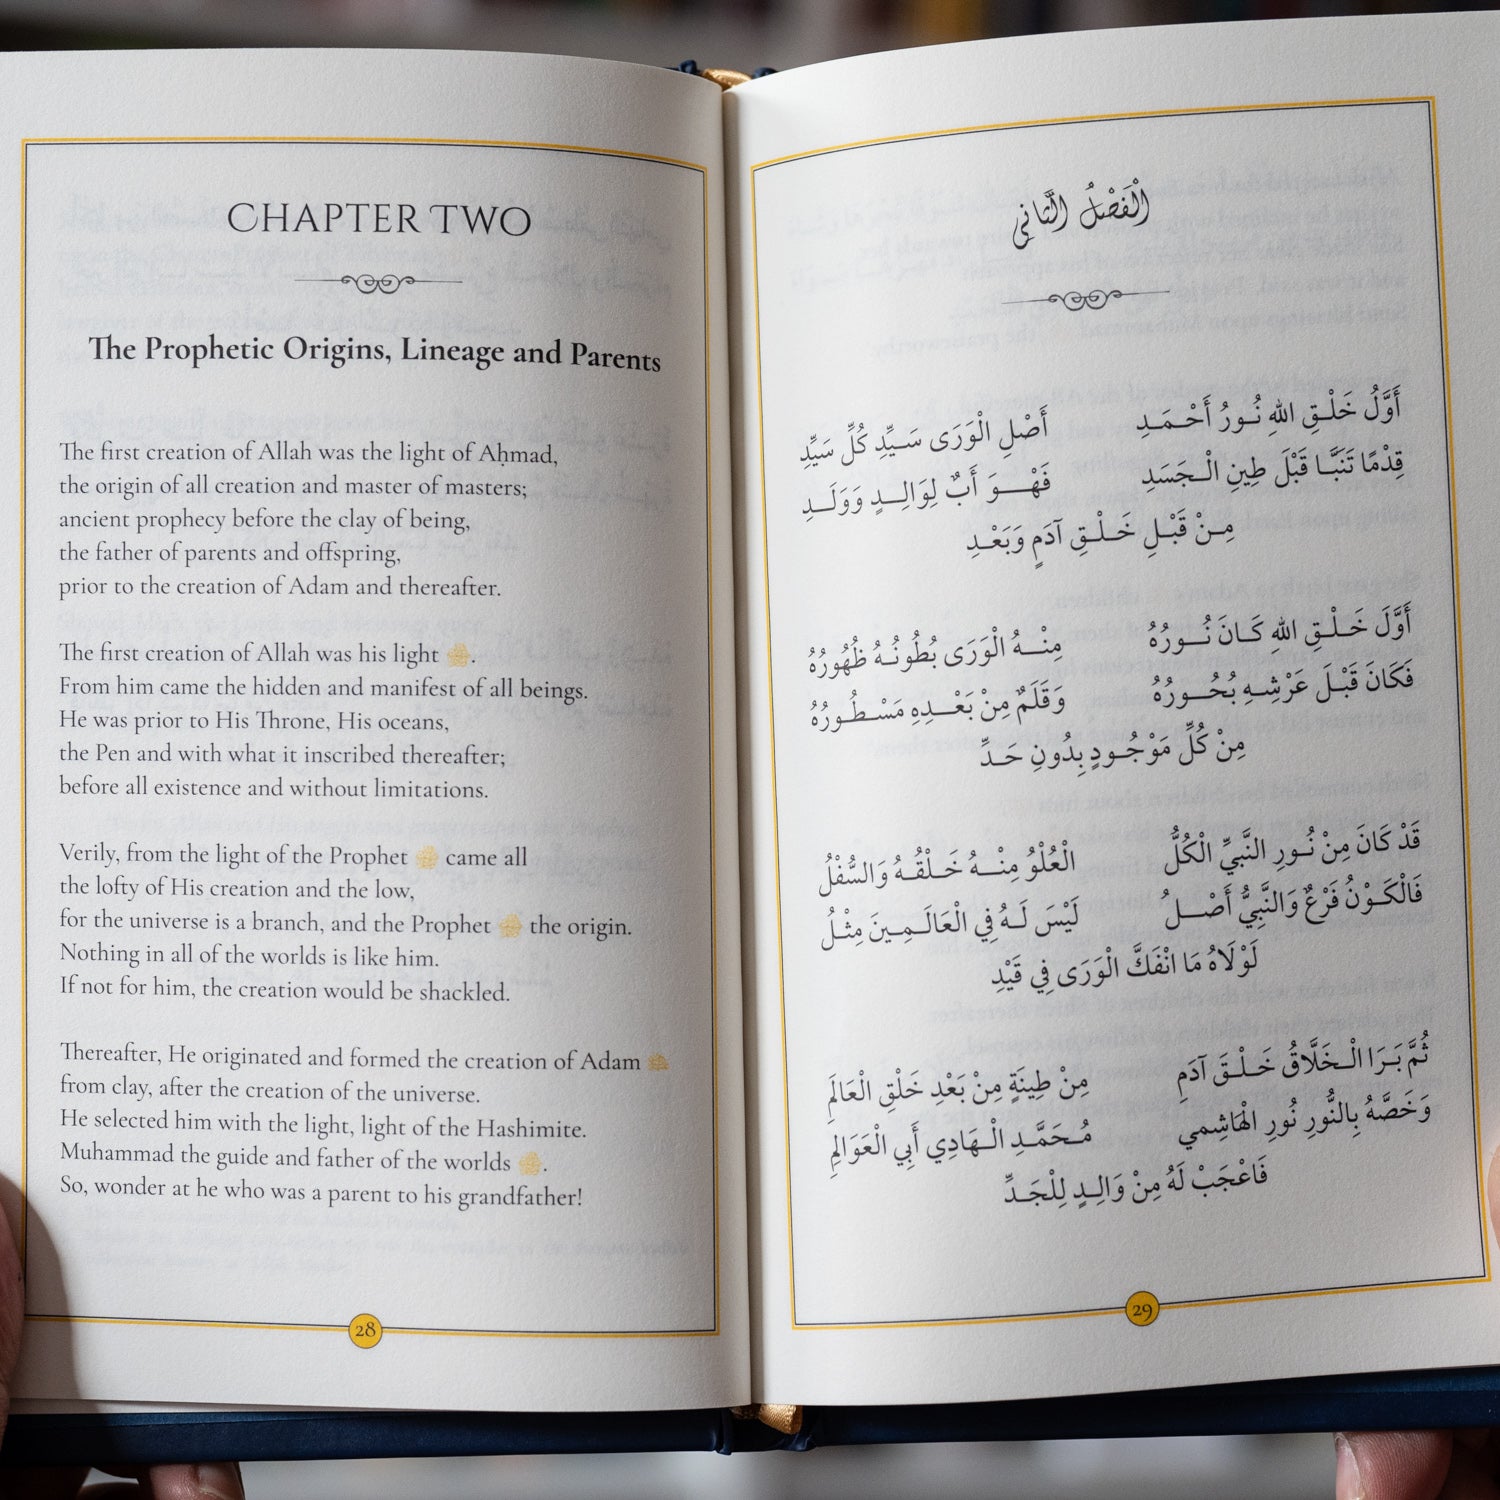 CHAPTER TWO
The Prophetic Origins, Lineage and Parents
The first creation of Allah was the light of Aḥmad,
the origin of all creation and master of masters;
ancient prophecy before the clay of being,
the father of parents and offspring,
prior to the creation of Adam and thereafter.
The first creation of Allah was his light ﷺ.
From him came the hidden and manifest of all beings.
He was prior to His Throne, His oceans,
the Pen and with what it inscribed thereafter;
before all existence and without limitations.
Verily, from the light of the Prophet ﷺ came all
the lofty of His creation and the low,
for the universe is a branch, and the Prophet ﷺ the origin.
Nothing in all of the worlds is like him.
If not for him, the creation would be shackled.
Thereafter, He originated and formed the creation of Adam
from clay, after the creation of the universe.
He selected him with the light, light of the Hashimite.
Muhammad the guide and father of the worlds ﷺ.
So, wonder at he who was a parent to his grandfather!
28
الْفَصْلُ الثَّانِي
أَوَّلُ خَلْقِ اللهِ نُورُ أَحْمَدِ أَصْلِ الْوَرَى سَيِّدِ كُلِّ سَيِّدِ
قِدْمًا تَنَبَّا قَبْلَ طِينِ الْجَسَدِ فَهْوَ أَبٌ لِوَالِدٍ وَوَلَدِ
مِنْ قَبْلِ خَلْقِ آدَمٍ وَبَعْدِ
أَوَّلَ خَلْقِ اللهِ كَانَ نُورُهُ مِنْهُ الْوَرَى بُطُونُهُ ظُهُورُهُ
فَكَانَ قَبْلَ عَرْشِهِ بُحُورُهُ وَقَلَمٌ مِنْ بَعْدِهِ مَسْطُورُهُ
مِنْ كُلِّ مَوْجُودٍ بِدُونِ حَدِّ
قَدْ كَانَ مِنْ نُورِ النَّبِيِّ الْكُلُّ الْعُلْوُ مِنْهُ خَلْقُهُ وَالسُّفْلُ
فَالْكَوْنُ فَرْعٌ وَالنَّبِيُّ أَصْلُ لَيْسَ لَهُ فِي الْعَالَمِينَ مِثْلُ
لَوْلَاهُ مَا انْفَكَّ الْوَرَى فِي قَيْدِ
ثُمَّ بَرَا الْخَلَّاقُ خَلْقَ آدَمِ مِنْ طِينَةٍ مِنْ بَعْدِ خَلْقِ الْعَالَمِ
وَخَصَّهُ بِالنُّورِ نُورِ الْهَاشِمي مُحَمَّدِ الْهَادِي أَبِي الْعَوَالِمِ
فَاعْجَبْ لَهُ مِنْ وَالِدٍ لِلْجَدِّ
29